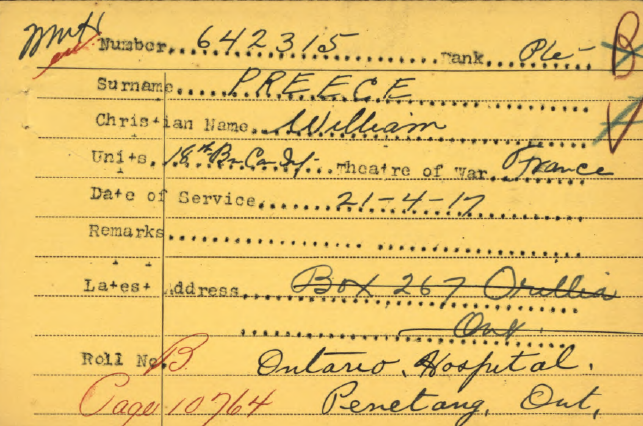 Number 642315 Rank Pte
B
Surname PREECE
Christian Name William
Units 18th Bn Can Inf Theatre of War France
Date of Service 21-4-17
Remarks
Latest Address Box 267 Orillia
Ont.
Roll No. B. Ontario. Hospital.
Page 10764 Penetang, Ont,